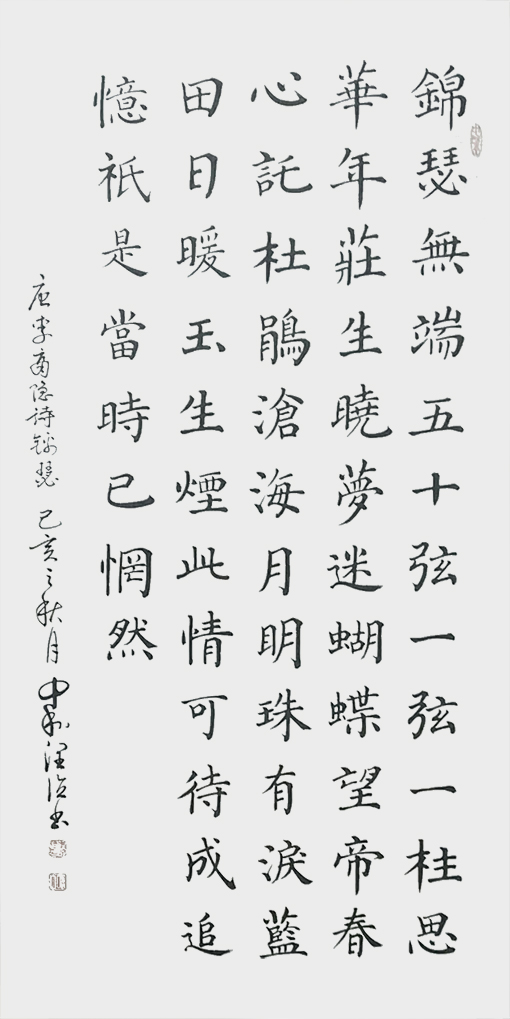 錦瑟無端五十弦一弦一柱思
華年莊生曉夢迷蝴蝶望帝春
心託杜鵑滄海月明珠有淚藍
田日暖玉生煙此情可待成追
憶祇是當時已惘然
唐李商隐诗锦瑟 己亥之秋月